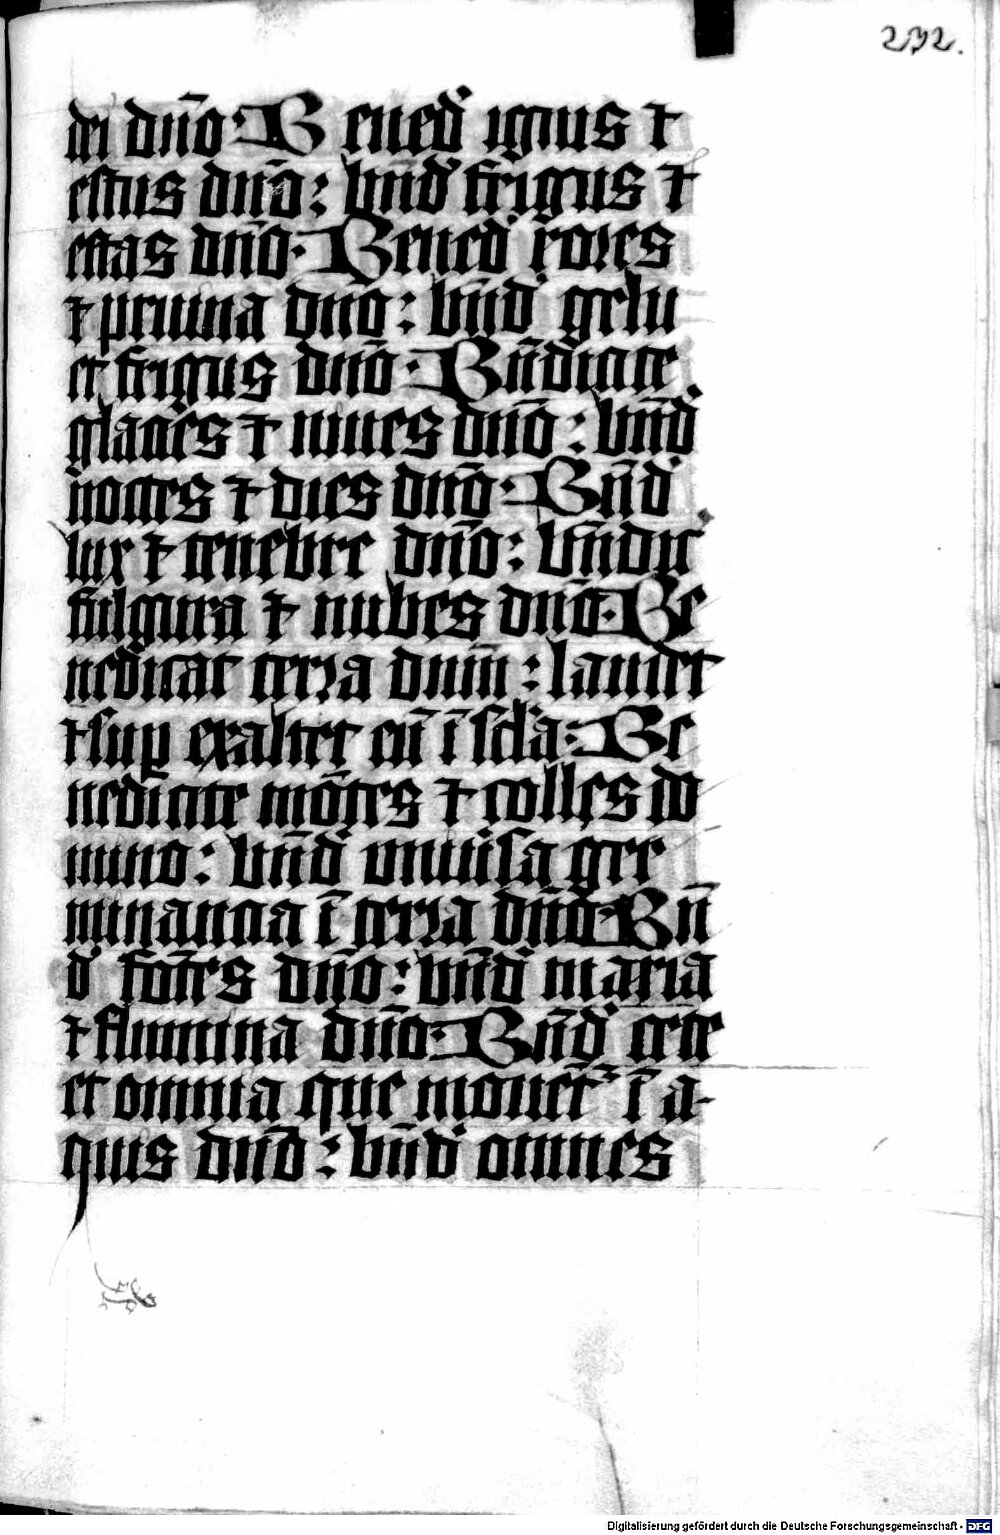 232.
dei dn̄o. Bened̛ ignis ⁊
estus dn̄o: bn̄d̛ frigus ⁊
estas dn̄o. Bened̛ rores
⁊ pruina dn̄o: bn̄d̛ gelu
et frigus dn̄o. Bn̄dicite
glacies ⁊ niues dn̄o: bn̄d̛
noctes ⁊ dies dn̄o. Bn̄d̛
lux ⁊ tenebre dn̄o: bn̄dic̄
fulgura ⁊ nubes dn̄o. Be
nedicat terra dnm̄: laudet
⁊ suꝑ exaltet eū ī scl̄a. Be
nedicite mōtes ⁊ colles do
mino: bn̄d̛ vniu̓sa ger
minancia ī terra dn̄o. Bn̄
d̛ fōtes dn̄o: bn̄d̛ maria
⁊ flumina dn̄o. Bn̄d̛ cete
et omnia que mouēt᷑ ī a-
quis dn̄o: bn̄d̛ omnes
Digitalisierung gefördert durch die Deutsche Forschungsgemeinschaft - DFG